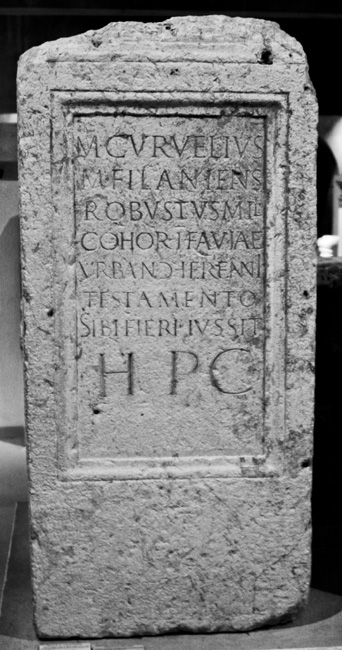 M CVRVELIVS
M F I L ANIENS
ROBVSTVS MIL
COHOR I FAVIAE
VRBANO HEREANI
TESTAMENTO
SIBI FIERI IVSSIT
H P C